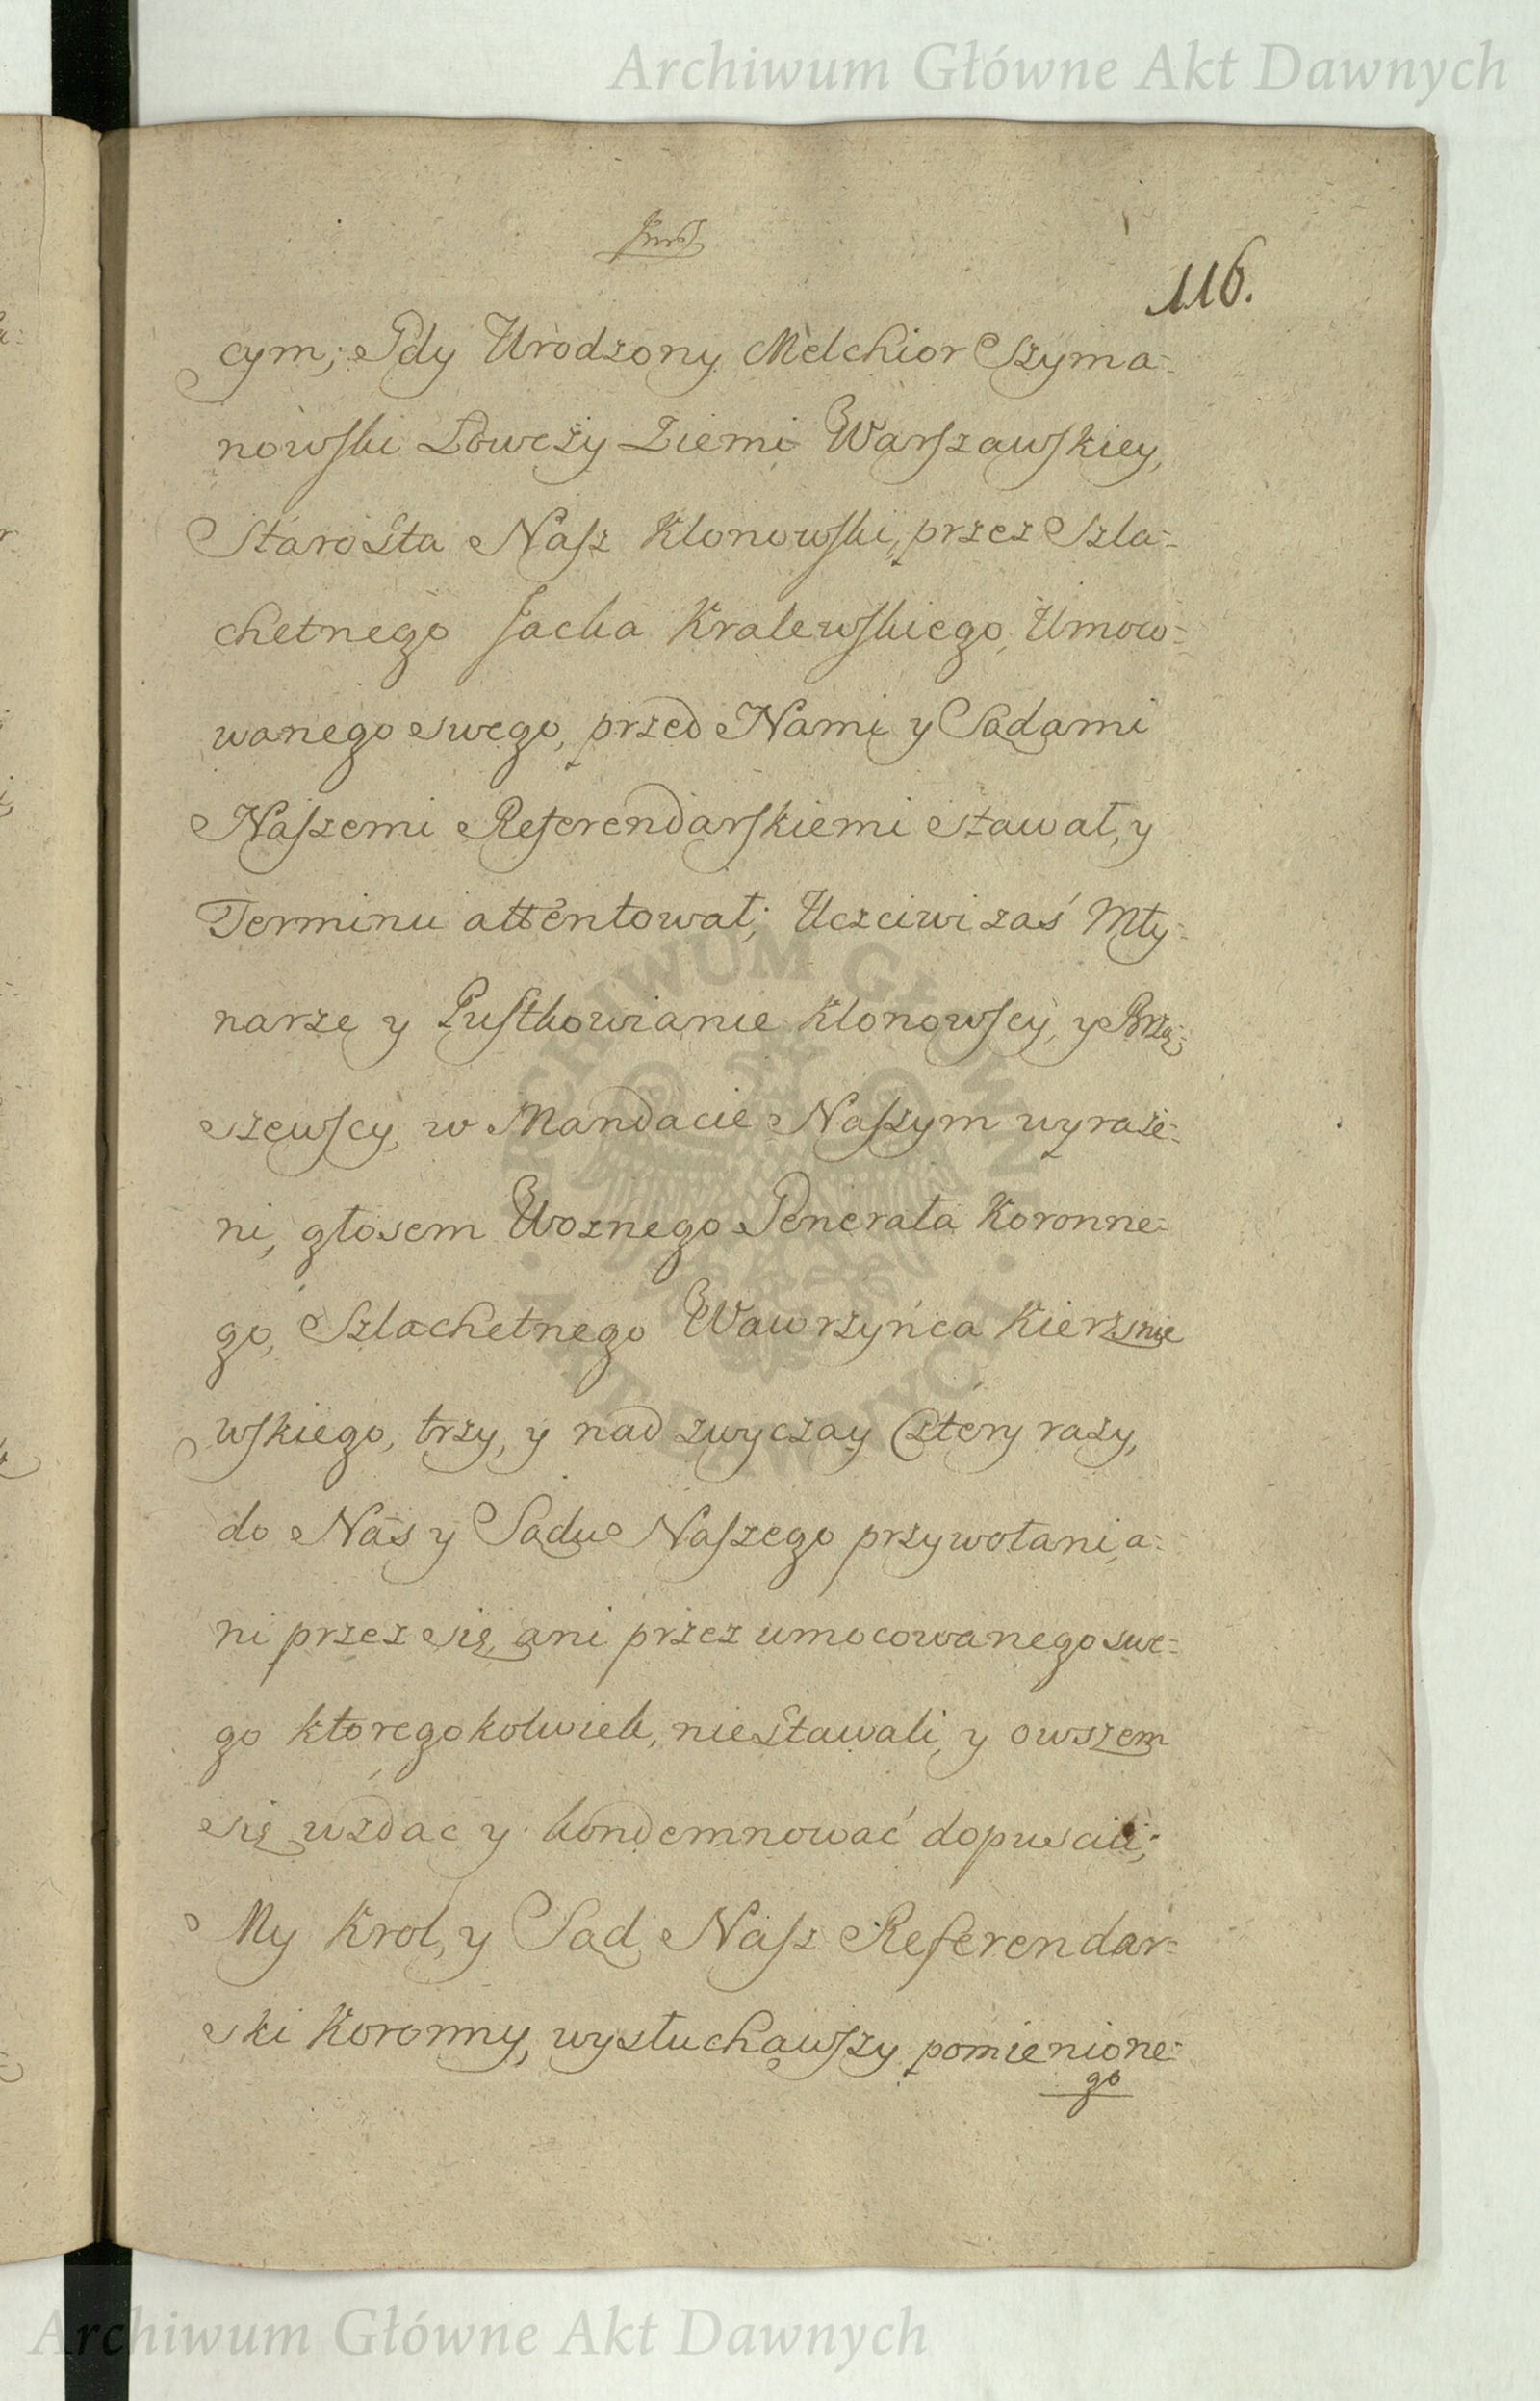 Archiwum Główne Akt Dawnych
116.
cym; Gdy Urodzony Melchior Szyma=
nowski Łowczy Ziemi Warszawskiey,
Starosta Nasz Klonowski, przez Szla=
chetnego Jacka Kralewskiego, Umoco=
wanego swego, przed Nami y Sądami
Naszemi Referendarskiemi stawał, y
Terminu attentował; Uczciwi zaś Mły=
narze y Pustkowianie Klonowscy, y Brzą=
szewscy, w Mandacie Naszym wyraże=
ni, głosem Woznego Generała Koronne=
go, Szlachetnego Wawrzyńca Kierznie
wskiego, trzy, y nad zwyczay cztery razy,
do Nas y Sądu Naszego przywołani, a=
ni przez się, ani przez umocowanego swe=
go ktoregokolwiek, niestawali, y owszem
się wzdac y kondemnować dopuscili;
My Krol, y Sąd Nasz Referendar=
ski Koronny, wysłuchawszy pomienione=
go
ARCHIWUM GŁÓWNE · AKT DAWNYCH ·
Archiwum Główne Akt Dawnych